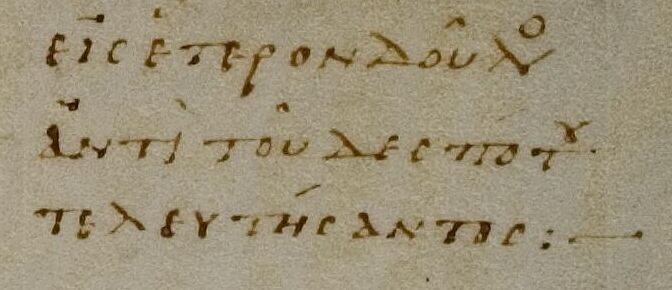 εἰς ἕτερον δοῦλο
ἀντὶ τοῦ δεσποτου
τελευτήσαντος:—